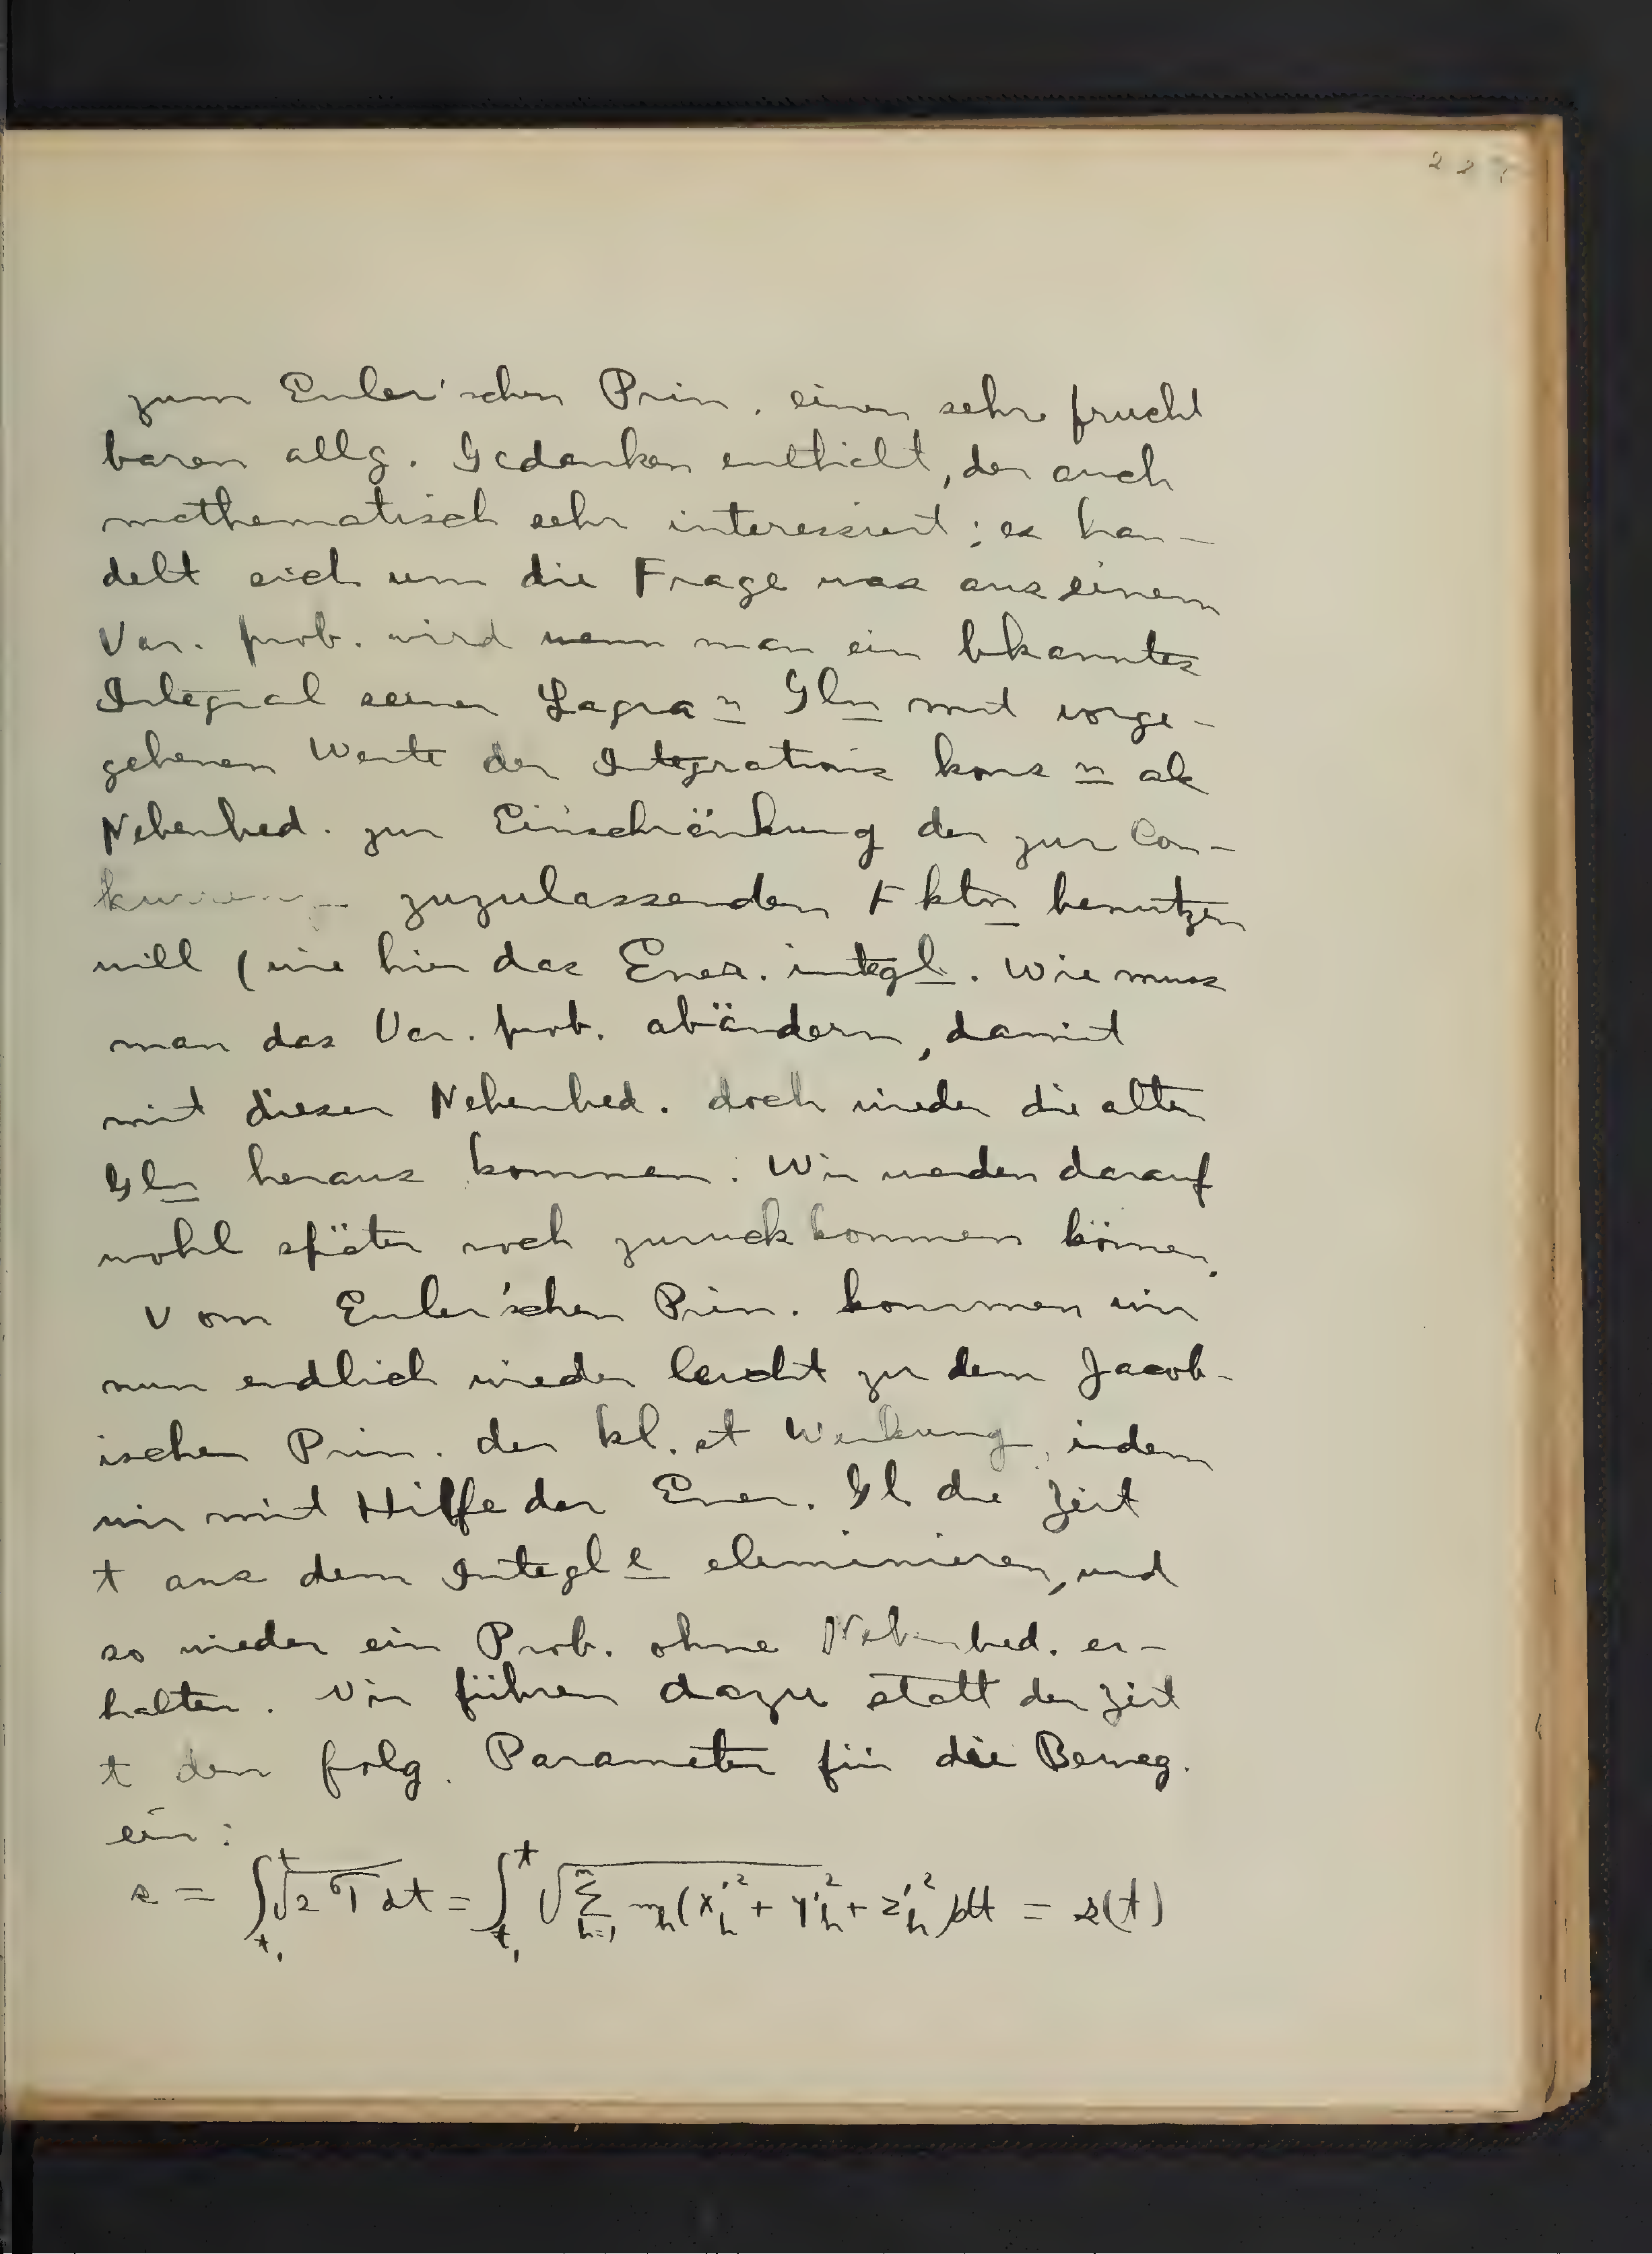 22
zum Euler'schen Prin. einen sehr frucht
baren allg. Gedanken enthielt, der auch
mathematisch sehr interessiert; es han-
delt sich um die Frage was aus einem
Var. prob. wird wenn man ein bekanntes
Integral seiner Lagra n Gln mit vorge-
gebenem Werte der Integrations kons n als
Nebenbed. zur Einschränkung der zur Con-
zuzulassenden Fktn benutzen
will (wie hier das Ener. integl. Wie muss
man das Var. prob. abändern, damit
mit dieser Nebenbed. doch wieder die alten
Gln heraus kommen. Wir werden darauf
wohl später noch zuruck kommen können.
Vom Euler'schen Prin. kommen wir
nun endlich wieder leicht zu dem Jacob-
ischen Prin. der kl. st Wirkung, indem
wir mit Hilfe der Ener. Gl. die Zeit
t aus dem Integl e eleminieren, und
so wieder ein Prob. ohne Nebenbed. er-
halten. Wir führen dazu statt der Zeit
t den folg. Parameter für die Beweg.
ein:
s = ∫_{t₁}^{t} √2T dt = ∫_{t₁}^{t} √Σ_{h=1}^{n} m_h(x'_h² + y'_h² + z'_h²) dt = s(t)